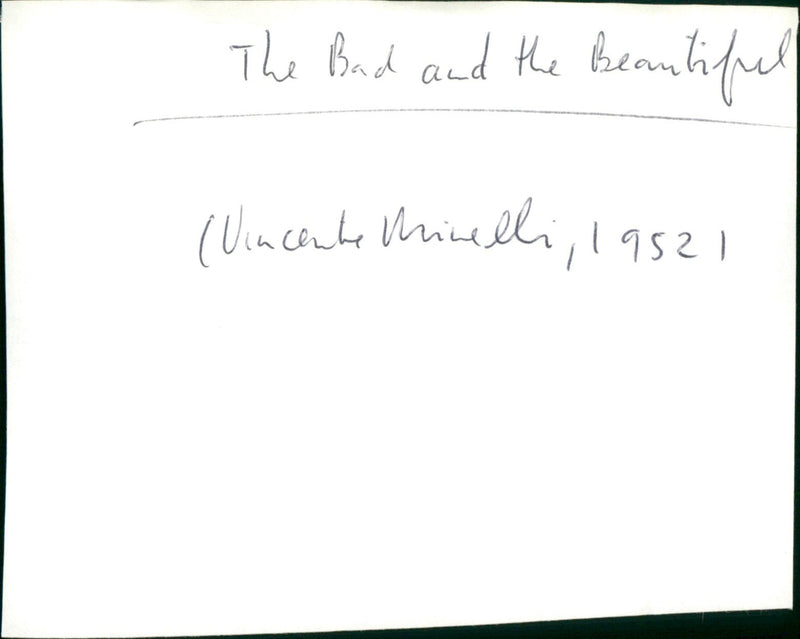 The Bad and the Beautiful
(Vincente Minelli, 1952)